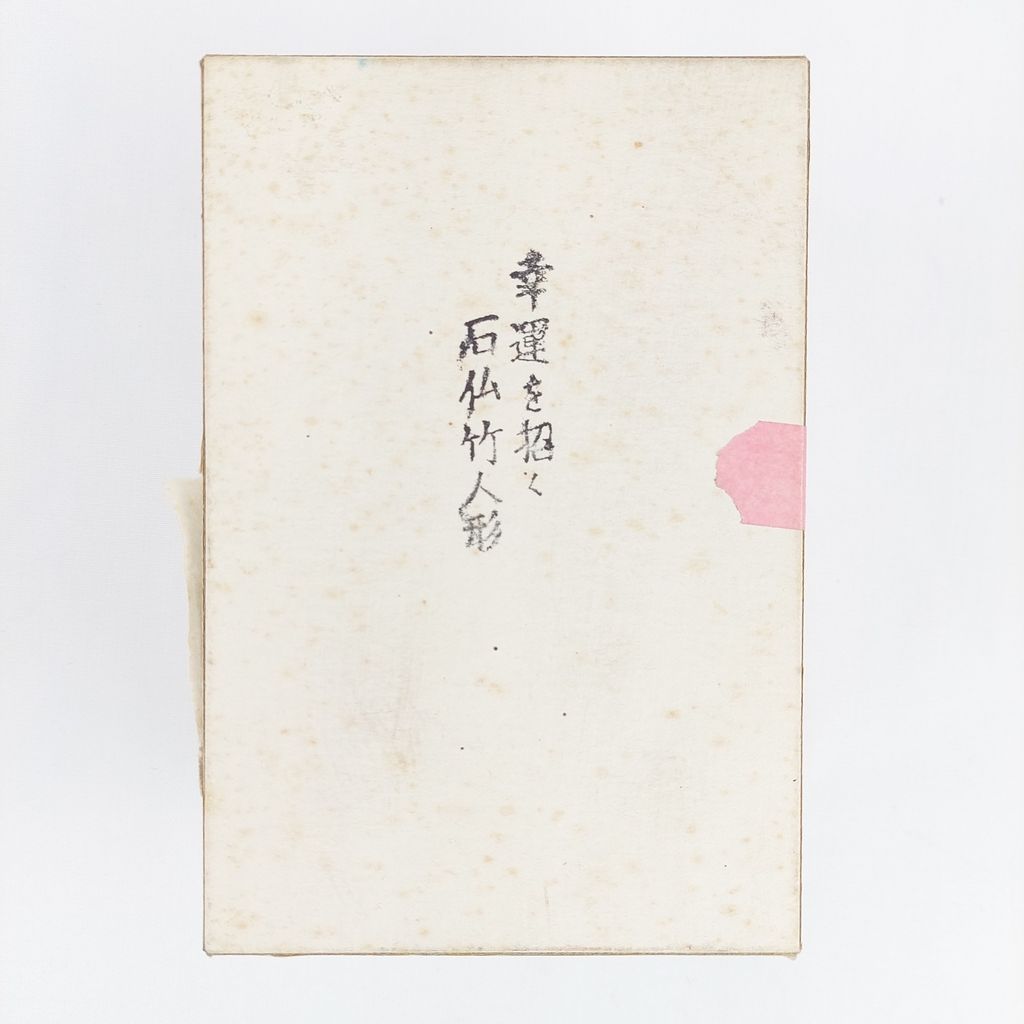 幸運を招く
石仏竹人形